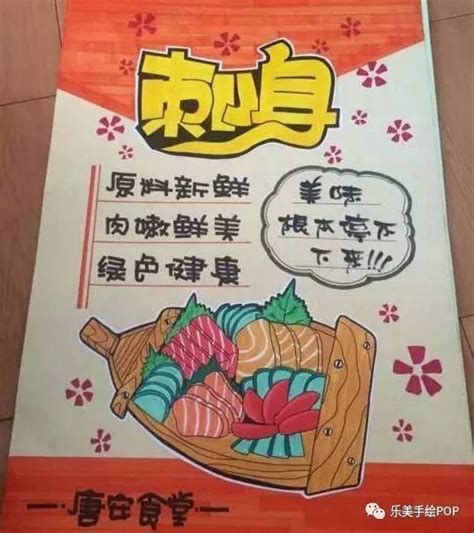 刺身
原料新鲜
肉嫩鲜美
绿色健康
美味
根本停不
下来!!!
唐安食堂
乐美手绘POP